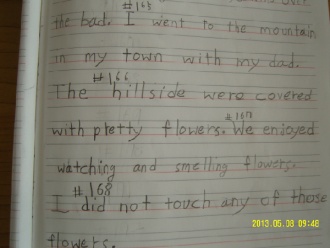 over
#165
the bad. I went to the mountain
in my town with my dad.
#166
The hillside were covered
#167
with pretty flowers. We enjoyed
watching and smelling flowers.
#168
I did not touch any of those
flowers.
2013.05.08 09:48